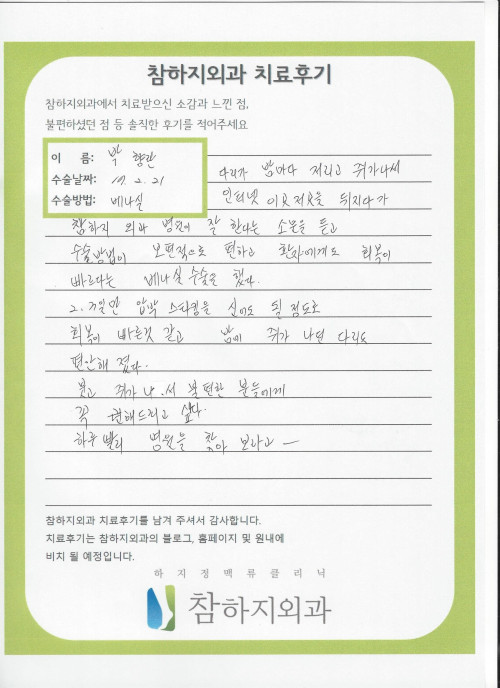 참하지외과 치료후기
참하지외과에서 치료받으신 소감과 느낀 점,
불편하셨던 점 등 솔직한 후기를 적어주세요
이 름: 박 향란
수술날짜: 17. 2. 21
수술방법: 베나실
다리가 밤마다 저리고 쥐가나서
인터넷 이곳저곳을 뒤지다가
참하지 외과 병원이 잘 한다는 소문을 듣고
수술방법이 보편적으로 편하고 환자에게도 회복이
빠르다는 베나실 수술을 했다.
2.3일만 압박 스타킹을 신어도 될 정도로
회복이 빠른것 같고 밤에 쥐가 나던 다리도
편안해 졌다.
붓고 쥐가 나서 불편한 분들에게
꼭 권해드리고 싶다.
하루 빨리 병원을 찾아 보라고 ―
참하지외과 치료후기를 남겨 주셔서 감사합니다.
치료후기는 참하지외과의 블로그, 홈페이지 및 원내에
비치 될 예정입니다.
하지정맥류클리닉
참하지외과